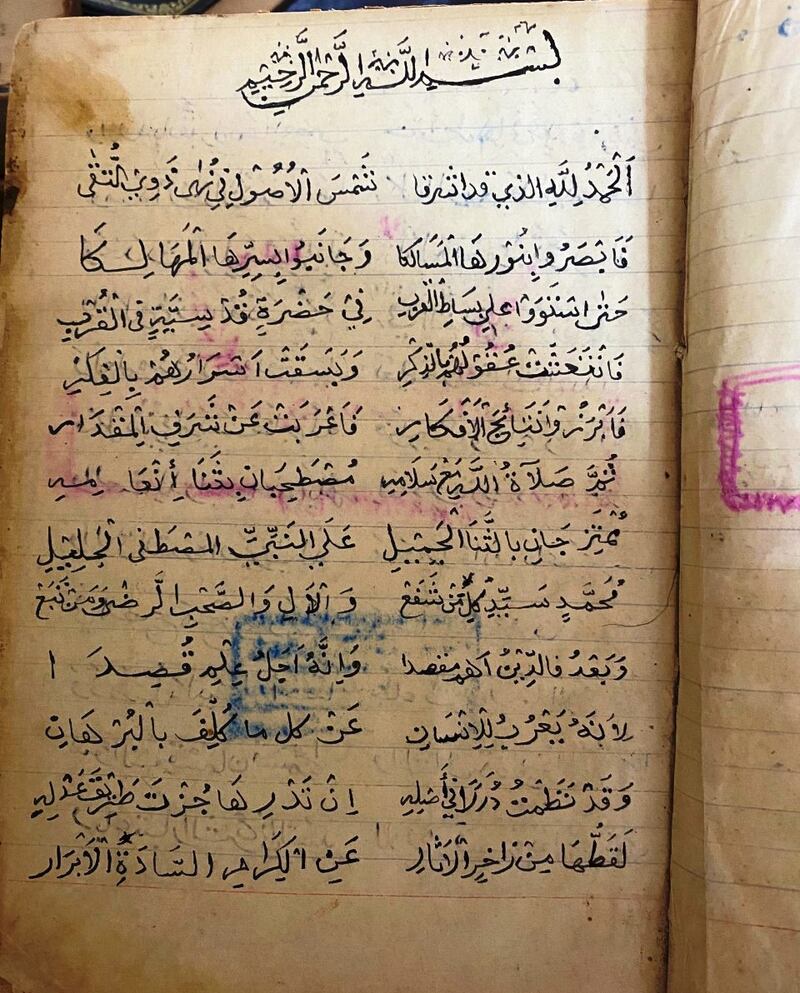 بسم الله الرحمن الرحيم
اَلْحَمْدُ لِلَّهِ الذي قد اشرقا شَمْسَ الْأُصُولِ فِي نُهَى ذَوِي التُّقَى
فَابْصَرُوا بِنُورِهَا الْمَسَالِكَا وَجَانَبُوا بِسِرِّهَا الْمَهَالِكَا
حَتَى اسْتَوَوْا عَلى بِسَاطِ الْقُرْبِ فِي حَضْرَةٍ قُدْسِيَّةٍ فِى الْقُرْبِ
فَانْتَعَشَتْ عُقُولُهُمْ بِالذِّكْرِ وَبَسَقَتْ اَسْرَارُهُمْ بِالْفِكْرِ
فَأَبْرَزُوا نَتَائِجَ الْأَفْكَارِ فَاعْرَبَتْ عَنْ شَرَفِ الْمِقْدَارِ
ثُمَّ صَلَاةُ اللَّهِ مَعْ سَلَامِهِ مُصْطَحِبَانِ بِثَنَا إِنْعَامِهِ
مُمْتَزِجَانِ بِالثَّنَا الْجَمِيلِ عَلَى النَّبِيِّ المصْطَفى الْجَلِيلِ
مُحَمَّدٍ سَيِّدِ كُلِّ مَنْ شَفَعْ وَالْآلِ وَالصَّحْبِ الرِّضى وَمَنْ تَبَعْ
وَبَعْدُ فالدِّينُ اَهَمُّ مَقْصدا وَإِنَّهُ اَجَلُّ عِلْمٍ قُصِدَا
لِأَنَهُ يُعْرِبُ لِلْإِنْسَانِ عَنْ كل ما كُلِّفَ بِالْبُرْهَانِ
وَقَدْ نَظَمْتُ دُرَرًا فِي أَصْلِهِ اِنْ تَدْرِهَا جُزْتَ طَرِيقَ عَدْلِهِ
لَقَطْتُهَا مِنْ زَاخِرِ الْآثَارِ عَنِ الْكِرَامِ السَّادَةِ الْأَبْرَار